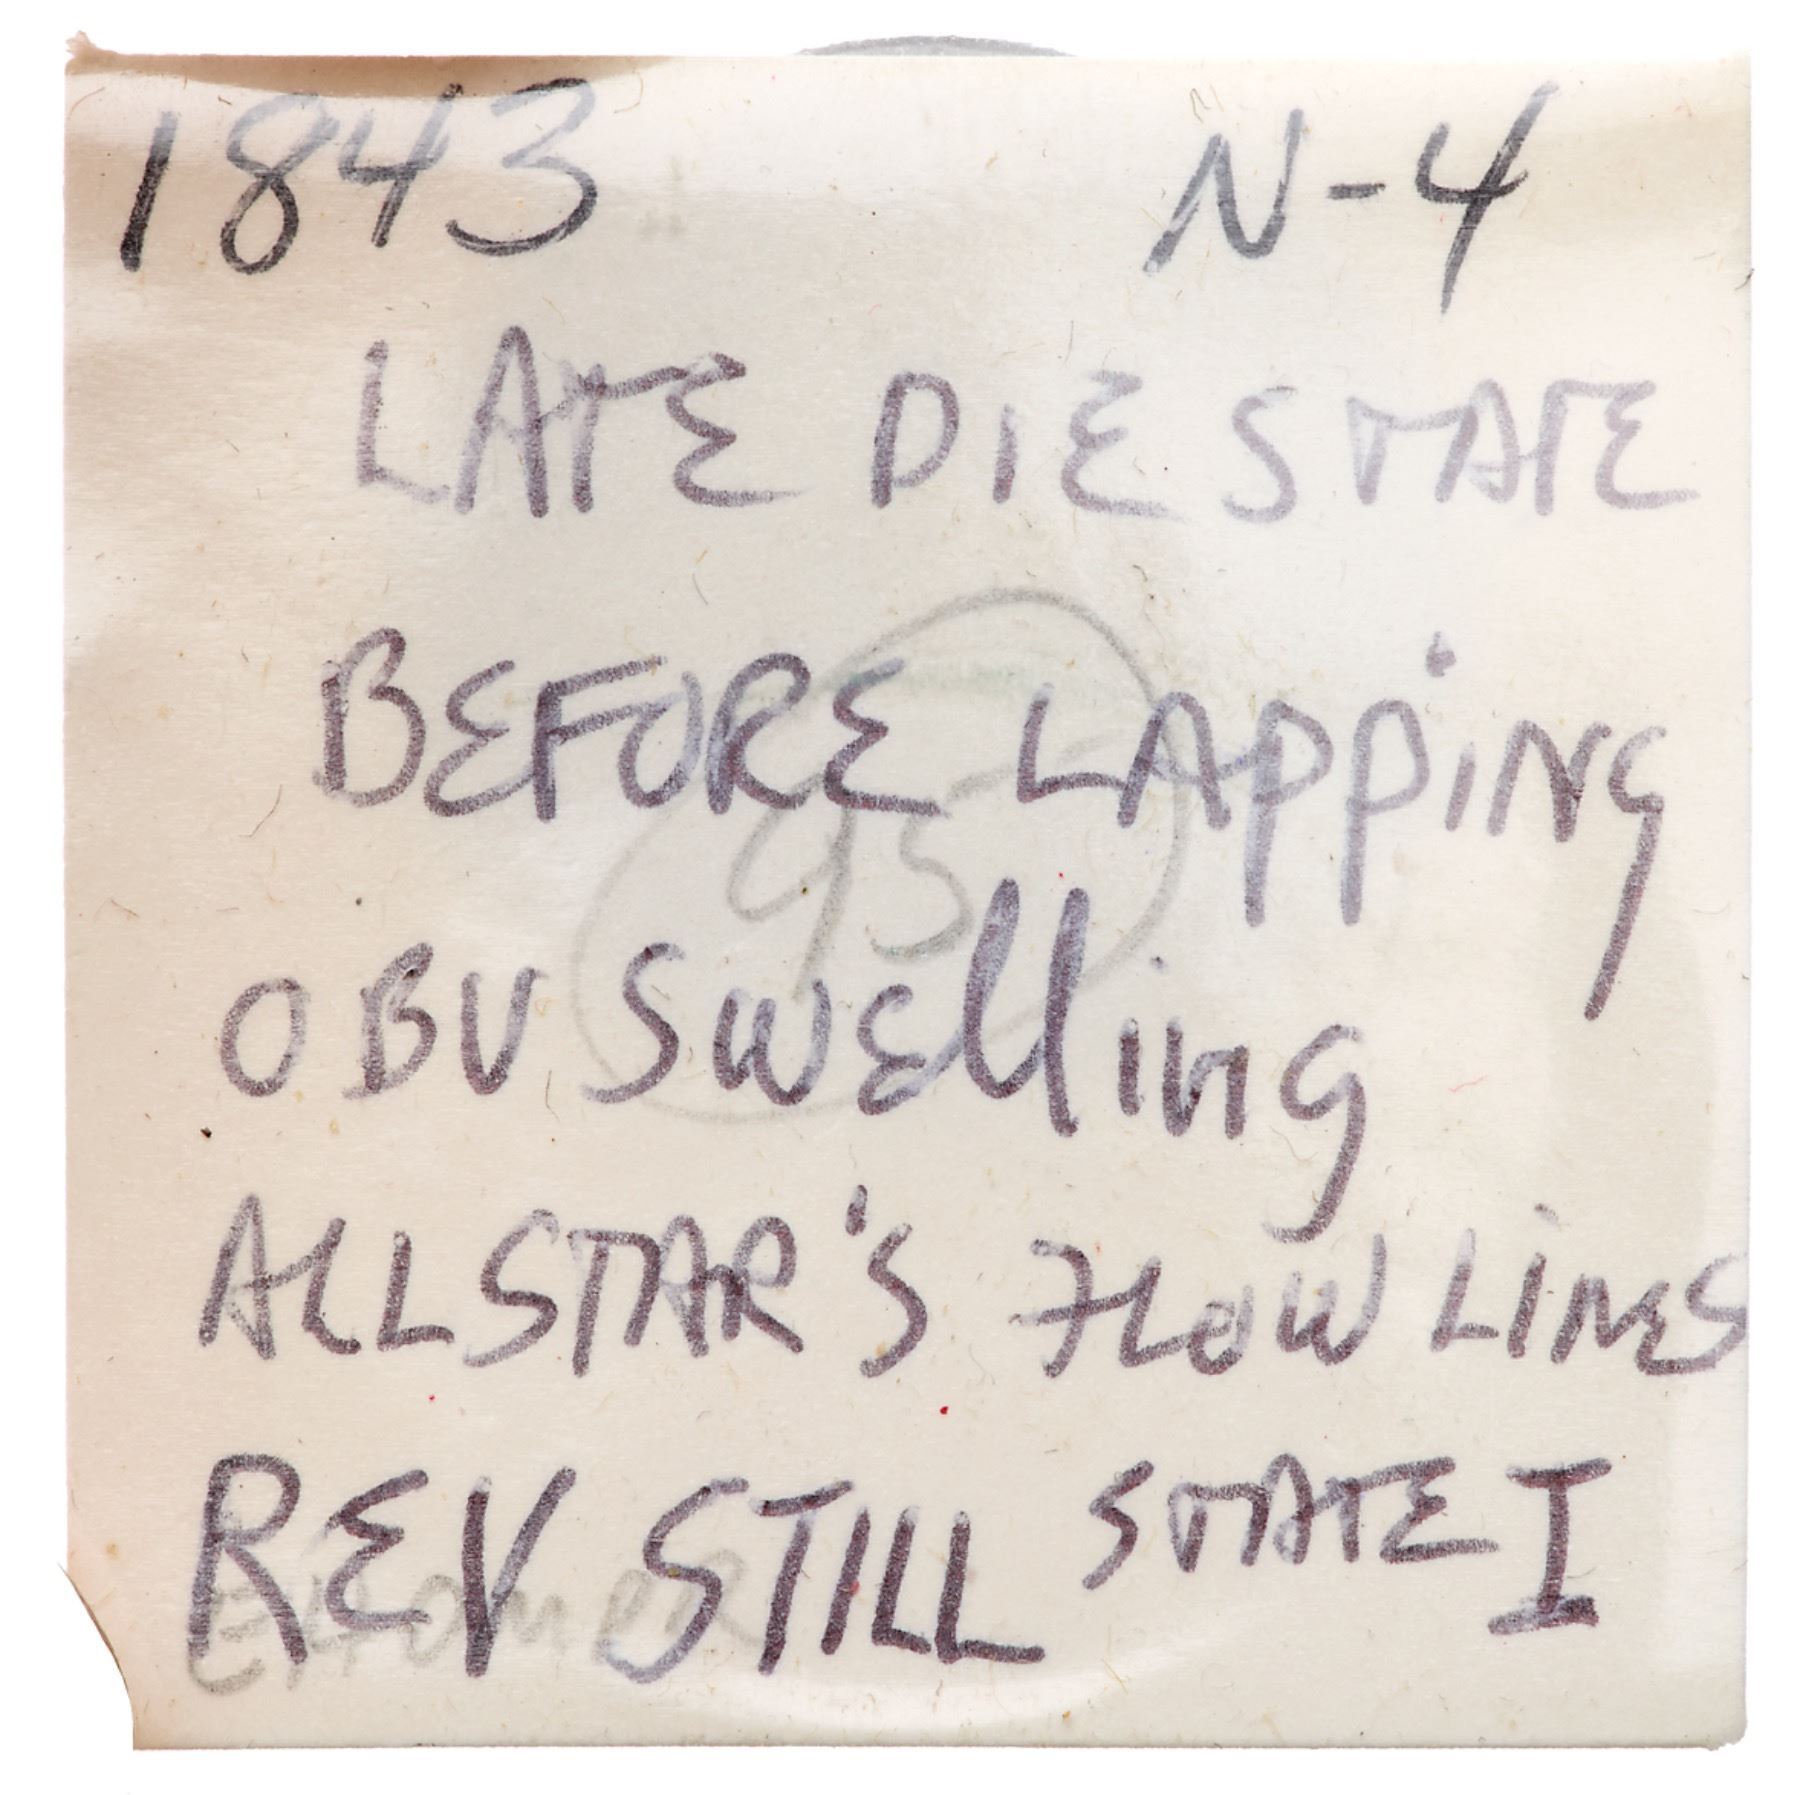 1843 N-4
LATE DIE STATE
BEFORE LAPPiNG
45
OBV SWElling
ALL STAR'S FLOW LiNES
REV STILL STATE I